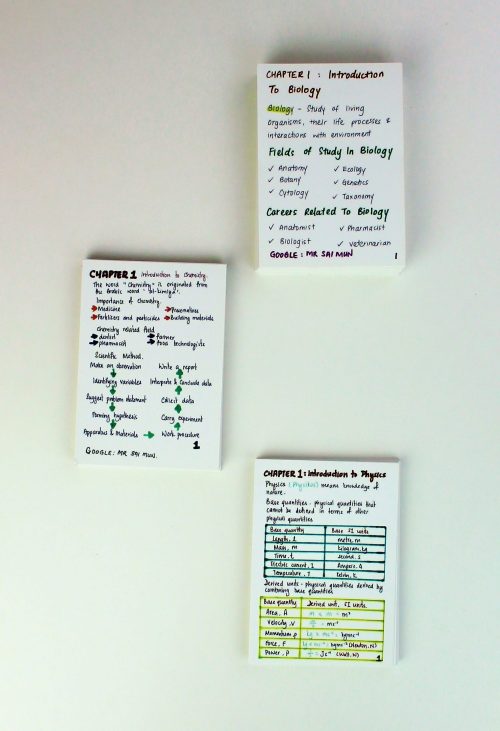 CHAPTER 1 : Introduction
To Biology
Biology - Study of living
organisms, their life processes &
interactions with environment
Fields of Study In Biology
✓ Anatomy ✓ Ecology
✓ Botany ✓ Genetics
✓ Cytology ✓ Taxonomy
Careers Related To Biology
✓ Anatomist ✓ Pharmacist
✓ Biologist ✓ Veterinarian
GOOGLE : MR SAI MUN 1
CHAPTER 1 Introduction to Chemistry.
The word "Chemistry" is originated from
the Arabic word "al-kimiya".
Importance of Chemistry.
Medicine Preservatives
Fertilizers and pesticides Building materials
Chemistry related field
dentist farmer
pharmacist food technologists
Scientific Method.
Make an observation Write a report
Identifying variables Interprete & conclude data
Suggest problem statement Collect data
Forming hypothesis Carry experiment
Apparatus & Materials Work procedure
1
GOOGLE: MR SAI MUN.
CHAPTER 1: Introduction to Physics
Physics (Physikos) means knowledge of
nature.
Base quantities - physical quantities that
cannot be defined in terms of other
physical quantities
Base quantity Base SI units
Length, l metre, m
Mass, m kilogram, kg
Time, t second, s
Electric current, I Ampere, A
Temperature, T kelvin, K
Derived units - physical quantities derived by
combining base quantities
Base quantity Derived unit, SI Units.
Area, A m × m = m²
Velocity, v = ms⁻¹
Momentum, p kg × ms⁻¹ = kgms⁻¹
Force, F (Newton, N)
Power, P = Js⁻¹ (Watt, W)
1